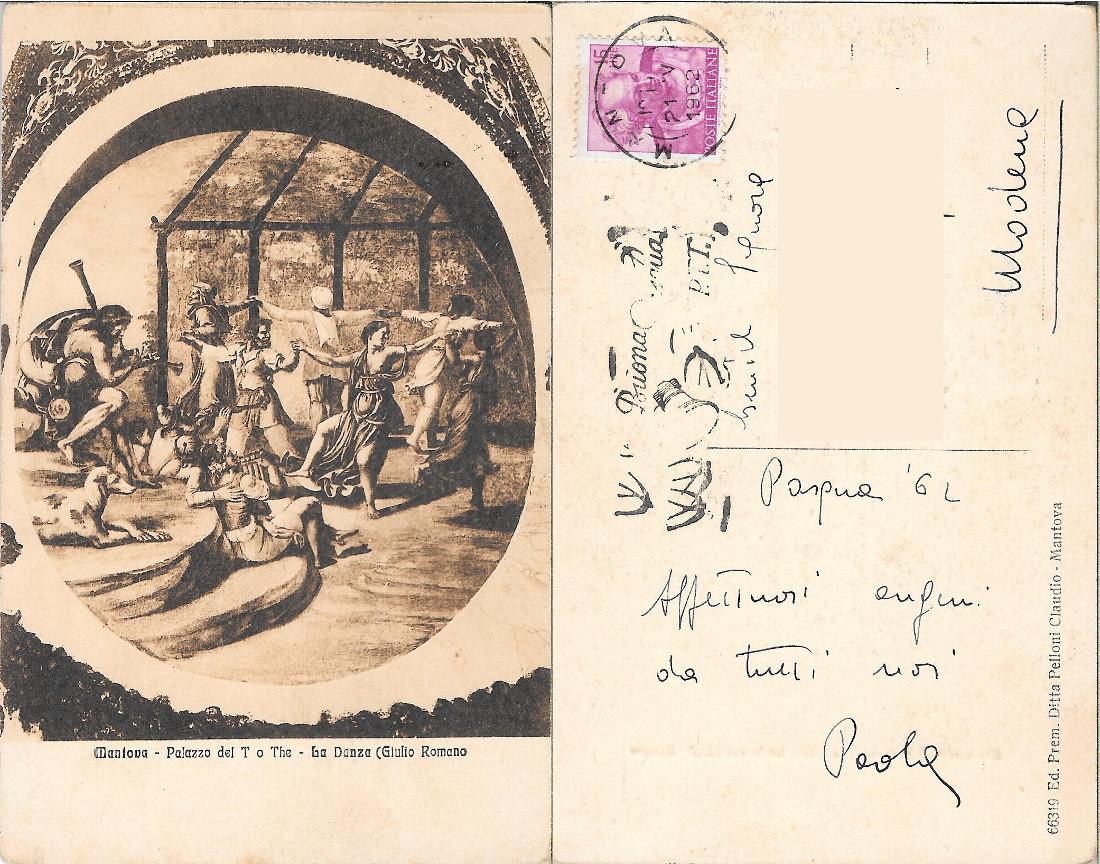 Mantova - Palazzo del T o The - La Danza (Giulio Romano
15
POSTE ITALIANE
21 V
1962
P.T.
Modena
Pasqua '62
Affettuosi auguri
da tutti noi
Paola
66319 Ed. Prem. Ditta Pelloni Claudio - Mantova